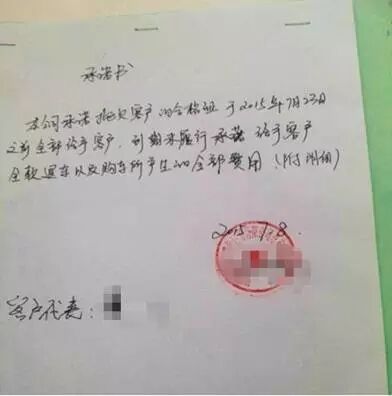 承诺书
本公司承诺拖欠客户的合格证于2015年7月23日
之前全部给予客户，到期未履行承诺给予客户
全款退车以及购车所产生的全部费用（附明细）
2015.7.8.
客户代表：